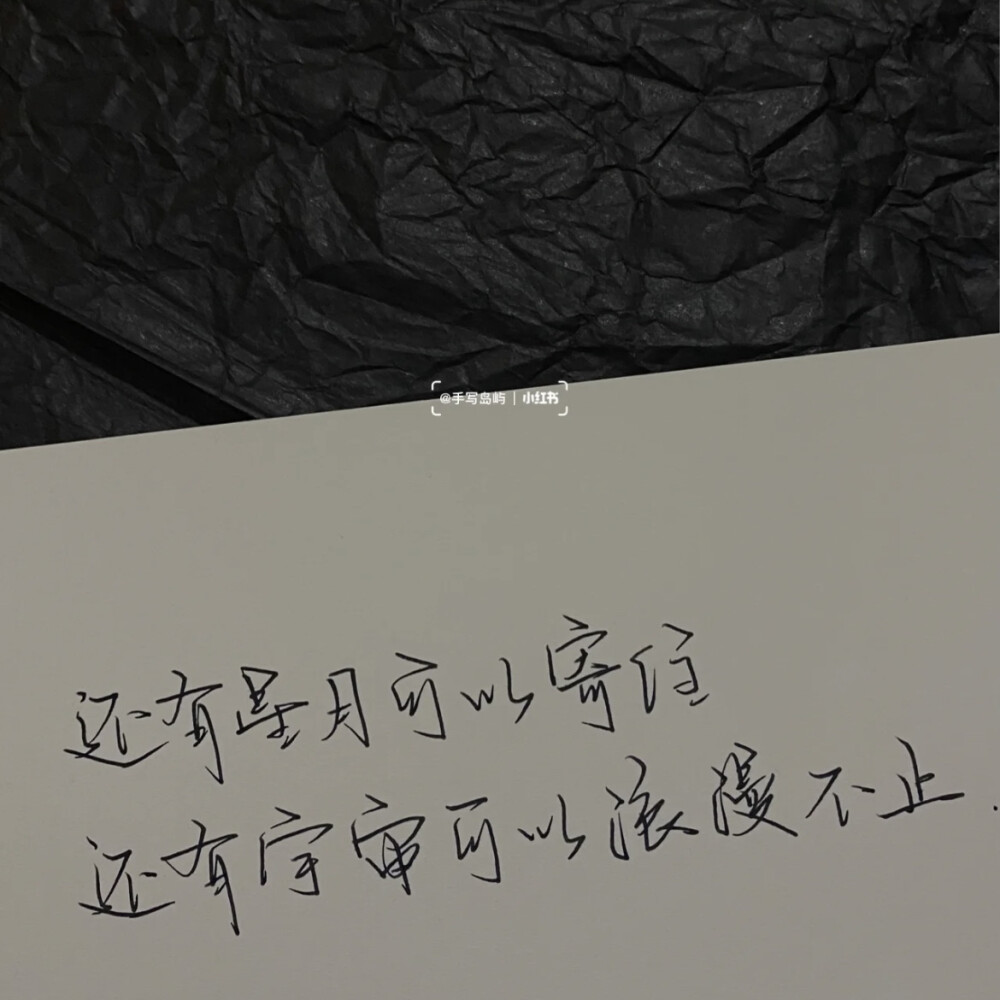 @手写岛屿 | 小红书
还有星月可以寄住
还有宇宙可以浪漫不止.